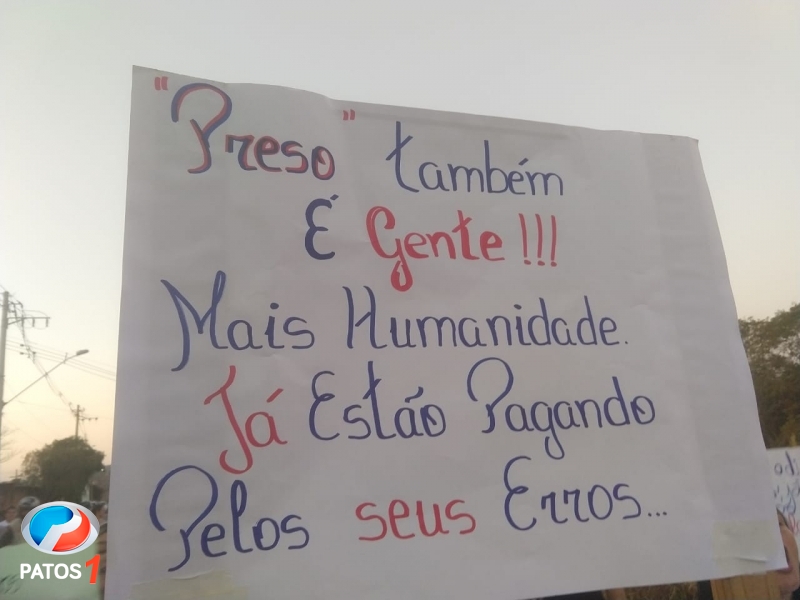 "Preso" também
É Gente!!!
Mais Humanidade.
Já Estão Pagando
Pelos seus Erros...
PATOS 1